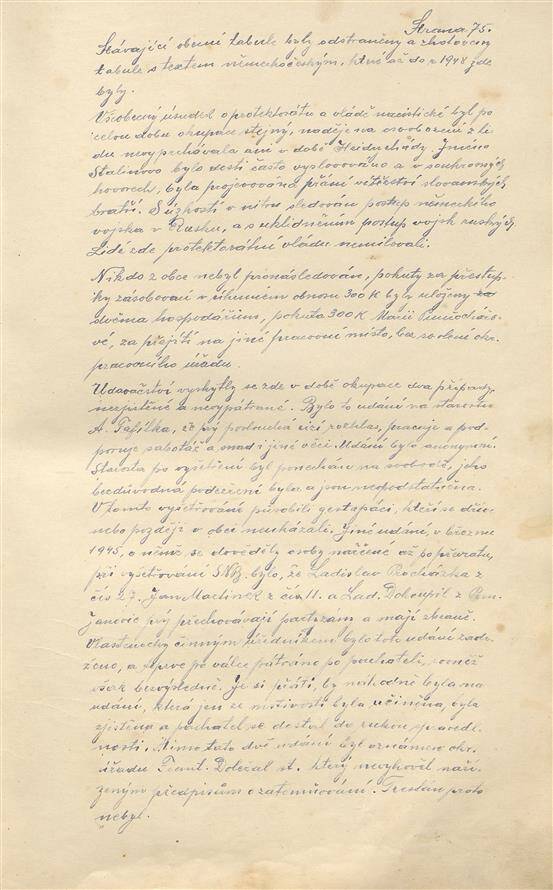 Strana 75.
Stávající obecní tabule byly odstraněny a zhotoveny
tabule s textem německočeským, které až do r 1948 zde
byly.
Všeobecný úsudek o protektorátu a vládě nacistické byl po
celou dobu okupace stejný, naděje na osvobození z li-
du nevyprchávala ani v době Heidrichiády. Jméno
Stalinovo bylo dosti často vyslovováno a v soukromých
hovorech, byla projevována přání vítězství slovanských
bratří. S úzkostí v nitru sledován postup německého
vojska v Rusku, a s uklidněním postup vojsk ruských.
Lidé zde protektorátní vládu nemilovali.
Nikdo z obce nebyl pronásledován, pokuty za přestup-
ky zásobování v úhrnném obnosu 300 K byly uloženy
dvěma hospodářům, pokuta 300 K Marii
vé, za přejití na jiné pracovní místo, bez svolení okr.
pracovního úřadu.
Udavačství vyskytly se zde v době okupace dva případy,
nezjištěné a nevypátrané. Bylo to udání na starostu
A. Pafilka, že prý poslouchá cizí rozhlas, pracuje a pod-
poruje sabotáž a snad i jiné věci. Udání bylo anonymní.
Starosta po vyšetření byl ponechán na svobodě, jeho
bezdůvodná podezření byla a jsou neopodstatněna.
V tomto vyšetřování působili gestapáci, kteří se dříve
nebo později v obci neukázali. Jiné udání, v březnu
1945, o němž se dověděly osoby nařčené až po převratu,
při vyšetřování SNB. bylo, že Ladislav Procházka z
čís 27., Jan Martinek z čís. 11. a Lad. Dokoupil z
Janovic prý přechovávají partyzám a mají zbraně.
Vlastenecky činným úředníkem bylo toto udání zadr-
ženo, a teprve po válce pátráno po pachateli, rovněž
však bezvýsledně. Je si přáti, by náhodně byla na
udání, která jen ze mstivosti byla učiněna, byla
zjištěna a pachatel se dostal do rukou spravedl-
nosti. Mimo tato dvě udání byl oznámen okr.
úřadu Frant. Doležal st. který nevyhověl naří-
zeným předpisům o zatemňování. Trestán proto
nebyl.